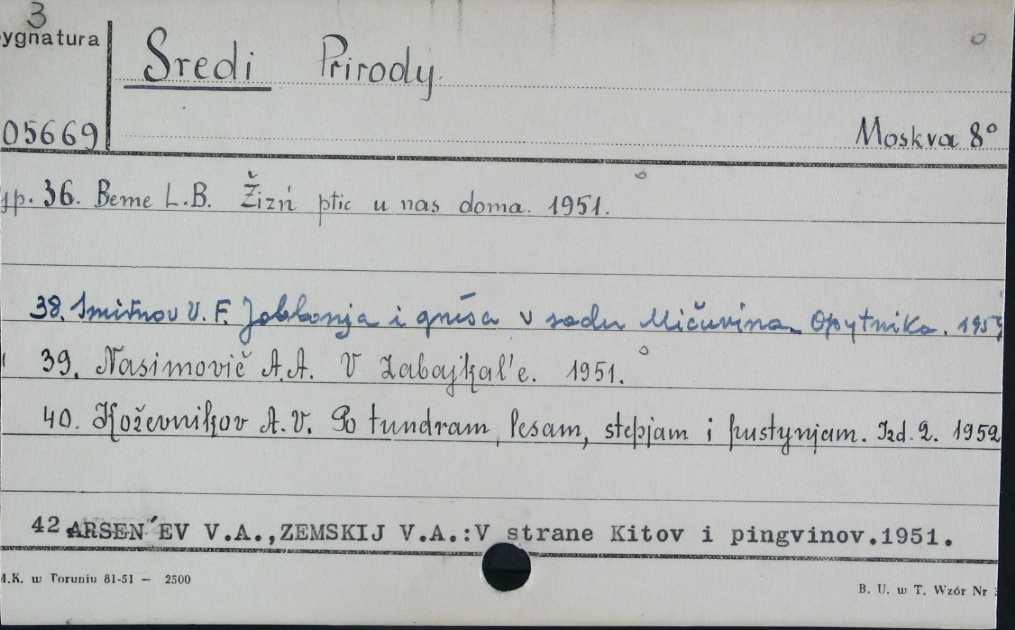 3
ygnatura
Sredi Prirody.
05669
Moskva 8°
zp. 36. Beme L.B. Žizń ptic u nas doma. 1951.
38. Smirnov V. F. Jablonja i gruša v sadu Mičurina Opytnika. 1953
39. Nasimovič A.A. V Zabajkal'e. 1951.
40. Koževnikov A.V. Po tundram, lesam, stepjam i pustynjam. Izd. 2. 1952
42 ARSEN´EV V.A.,ZEMSKIJ V.A.:V strane Kitov i pingvinov.1951.
M.K. w Toruniu 81-51 — 2500
B. U. w T. Wzór Nr